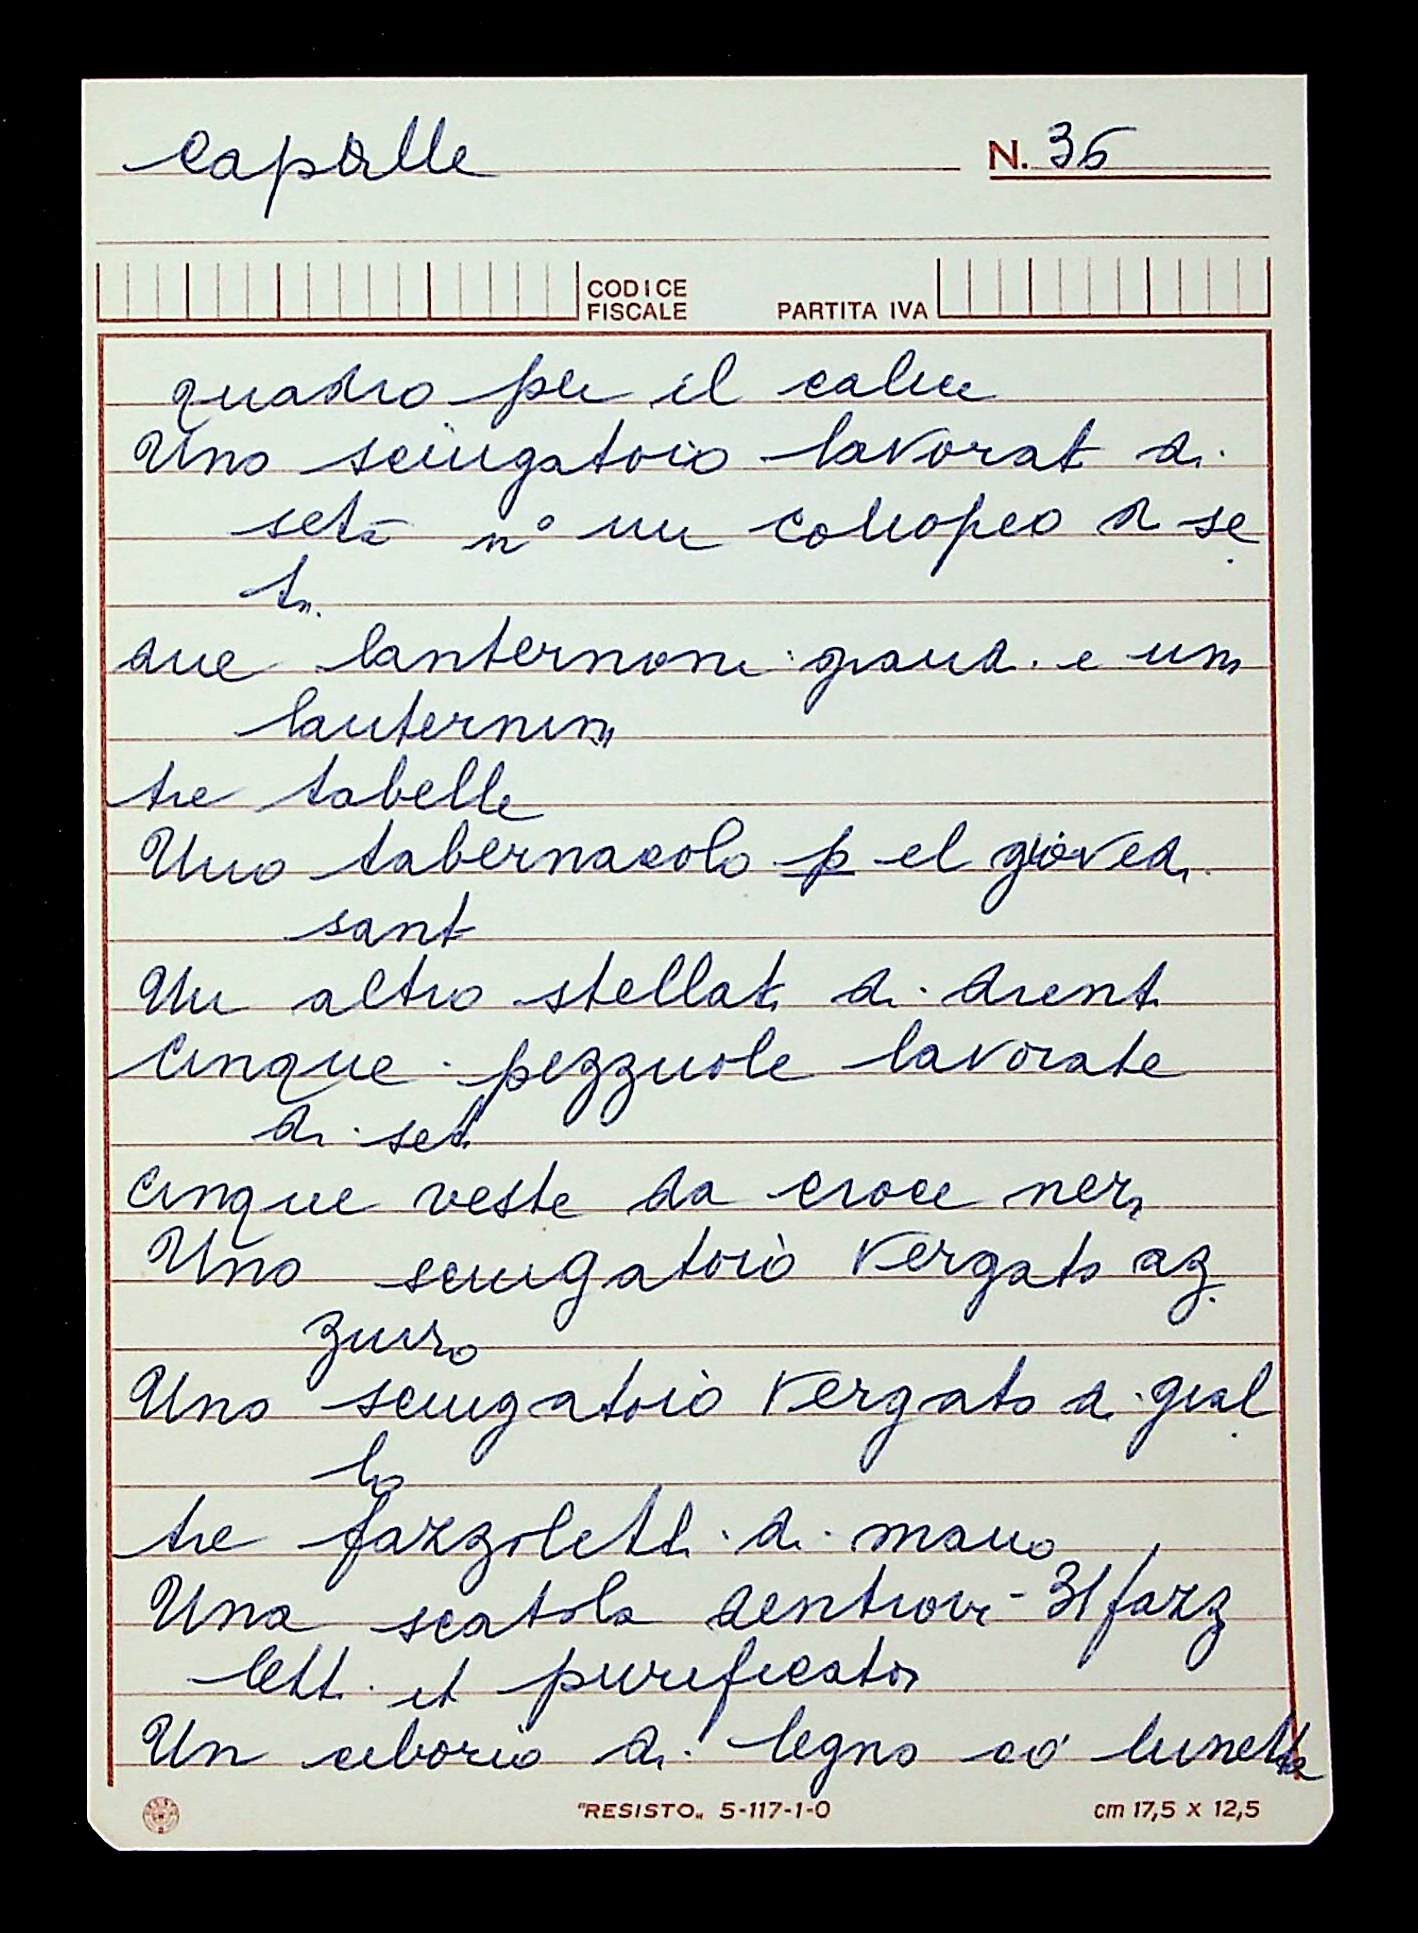 Capalle
N. 36
CODICE
FISCALE
PARTITA IVA
quadro per il calice
Uno sciugatoio lavorato di
seta n° un coltropeo di se
ta
due lanternoni grandi e uno
lanternino
tre tabelle
Uno tabernacolo p el giovedi
santo
Un altro stellato di drento
Cinque pezzuole lavorate
di seta
Cinque veste da croce nere
Uno sciugatoio vergato az
zurro
Uno sciugatoio vergato di gial
lo
tre fazzoletti di mano
Una scatola dentrovi 31 fazz
letti et purificatori
Un ciborio di legno co lunetta
"RESISTO" 5-117-1-0
cm 17,5 x 12,5